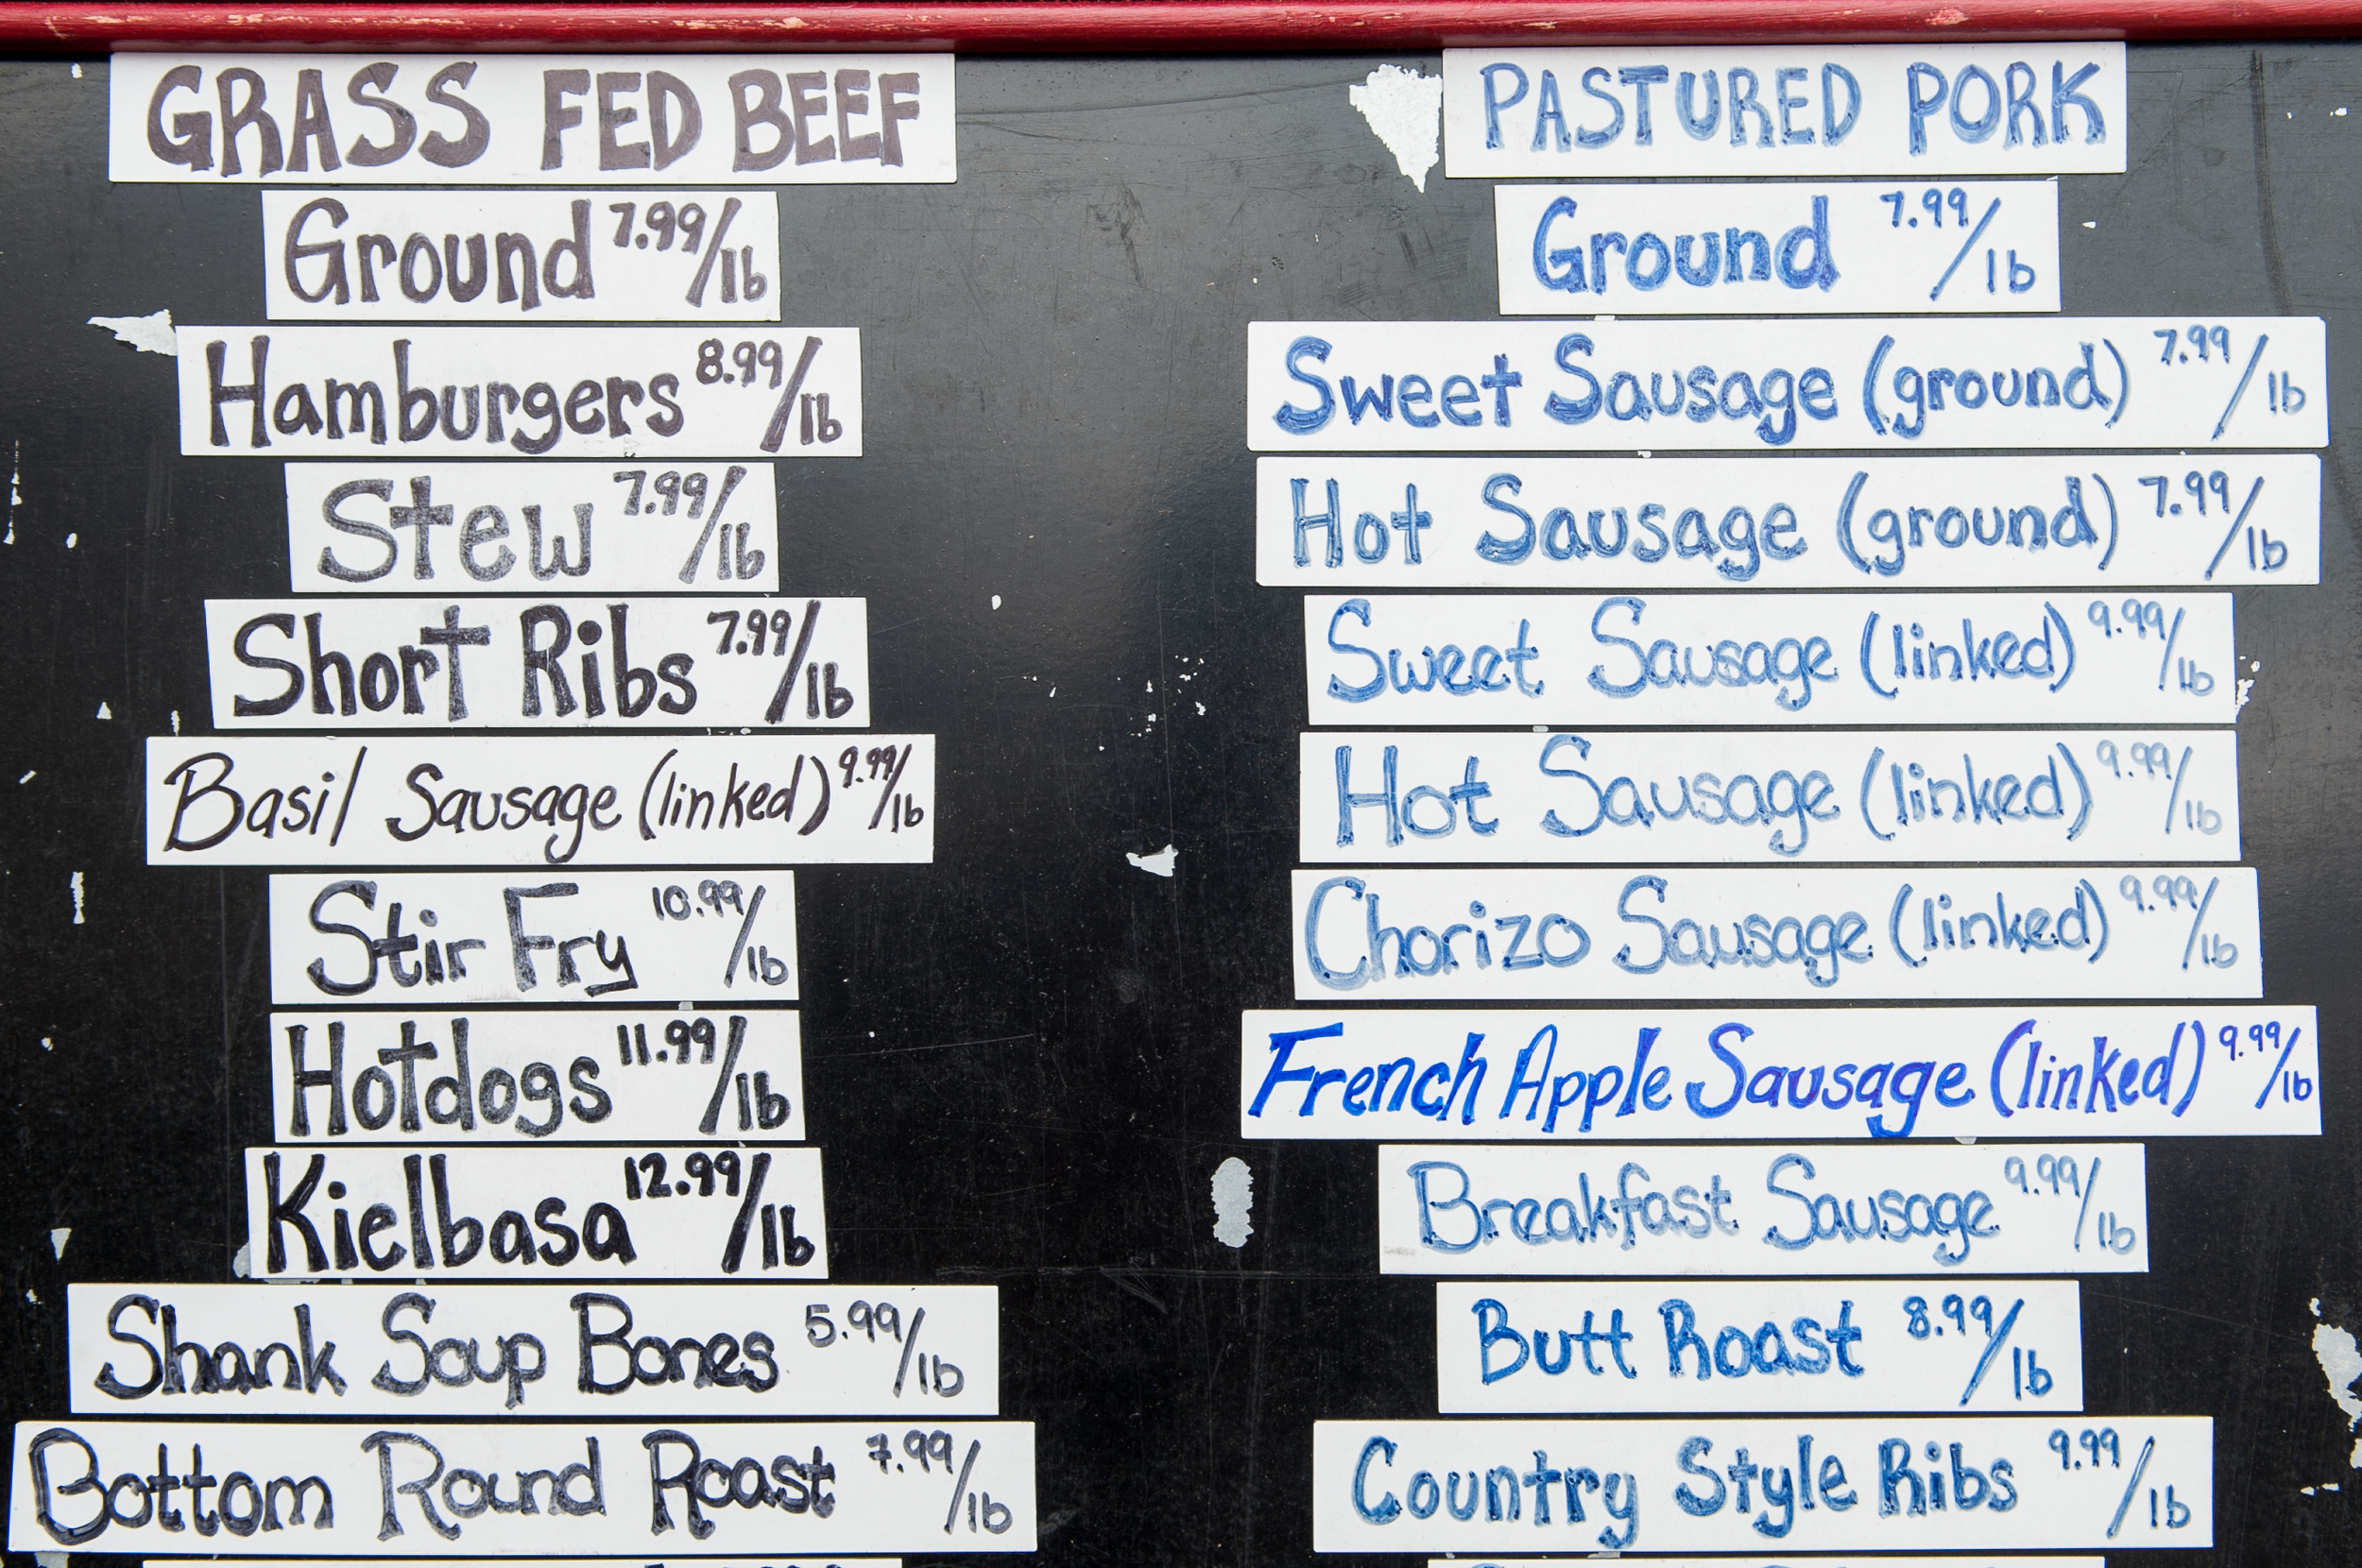 GRASS FED BEEF
Ground 7.99/lb
Hamburgers 8.99/lb
Stew 7.99/lb
Short Ribs 7.99/lb
Basil Sausage (linked) 9.99/lb
Stir Fry 10.99/lb
Hotdogs 11.99/lb
Kielbasa 12.99/lb
Shank Soup Bones 5.99/lb
Bottom Round Roast 7.99/lb
PASTURED PORK
Ground 7.99/lb
Sweet Sausage (ground) 7.99/lb
Hot Sausage (ground) 7.99/lb
Sweet Sausage (linked) 9.99/lb
Hot Sausage (linked) 9.99/lb
Chorizo Sausage (linked) 9.99/lb
French Apple Sausage (linked) 9.99/lb
Breakfast Sausage 9.99/lb
Butt Roast 8.99/lb
Country Style Ribs 9.99/lb